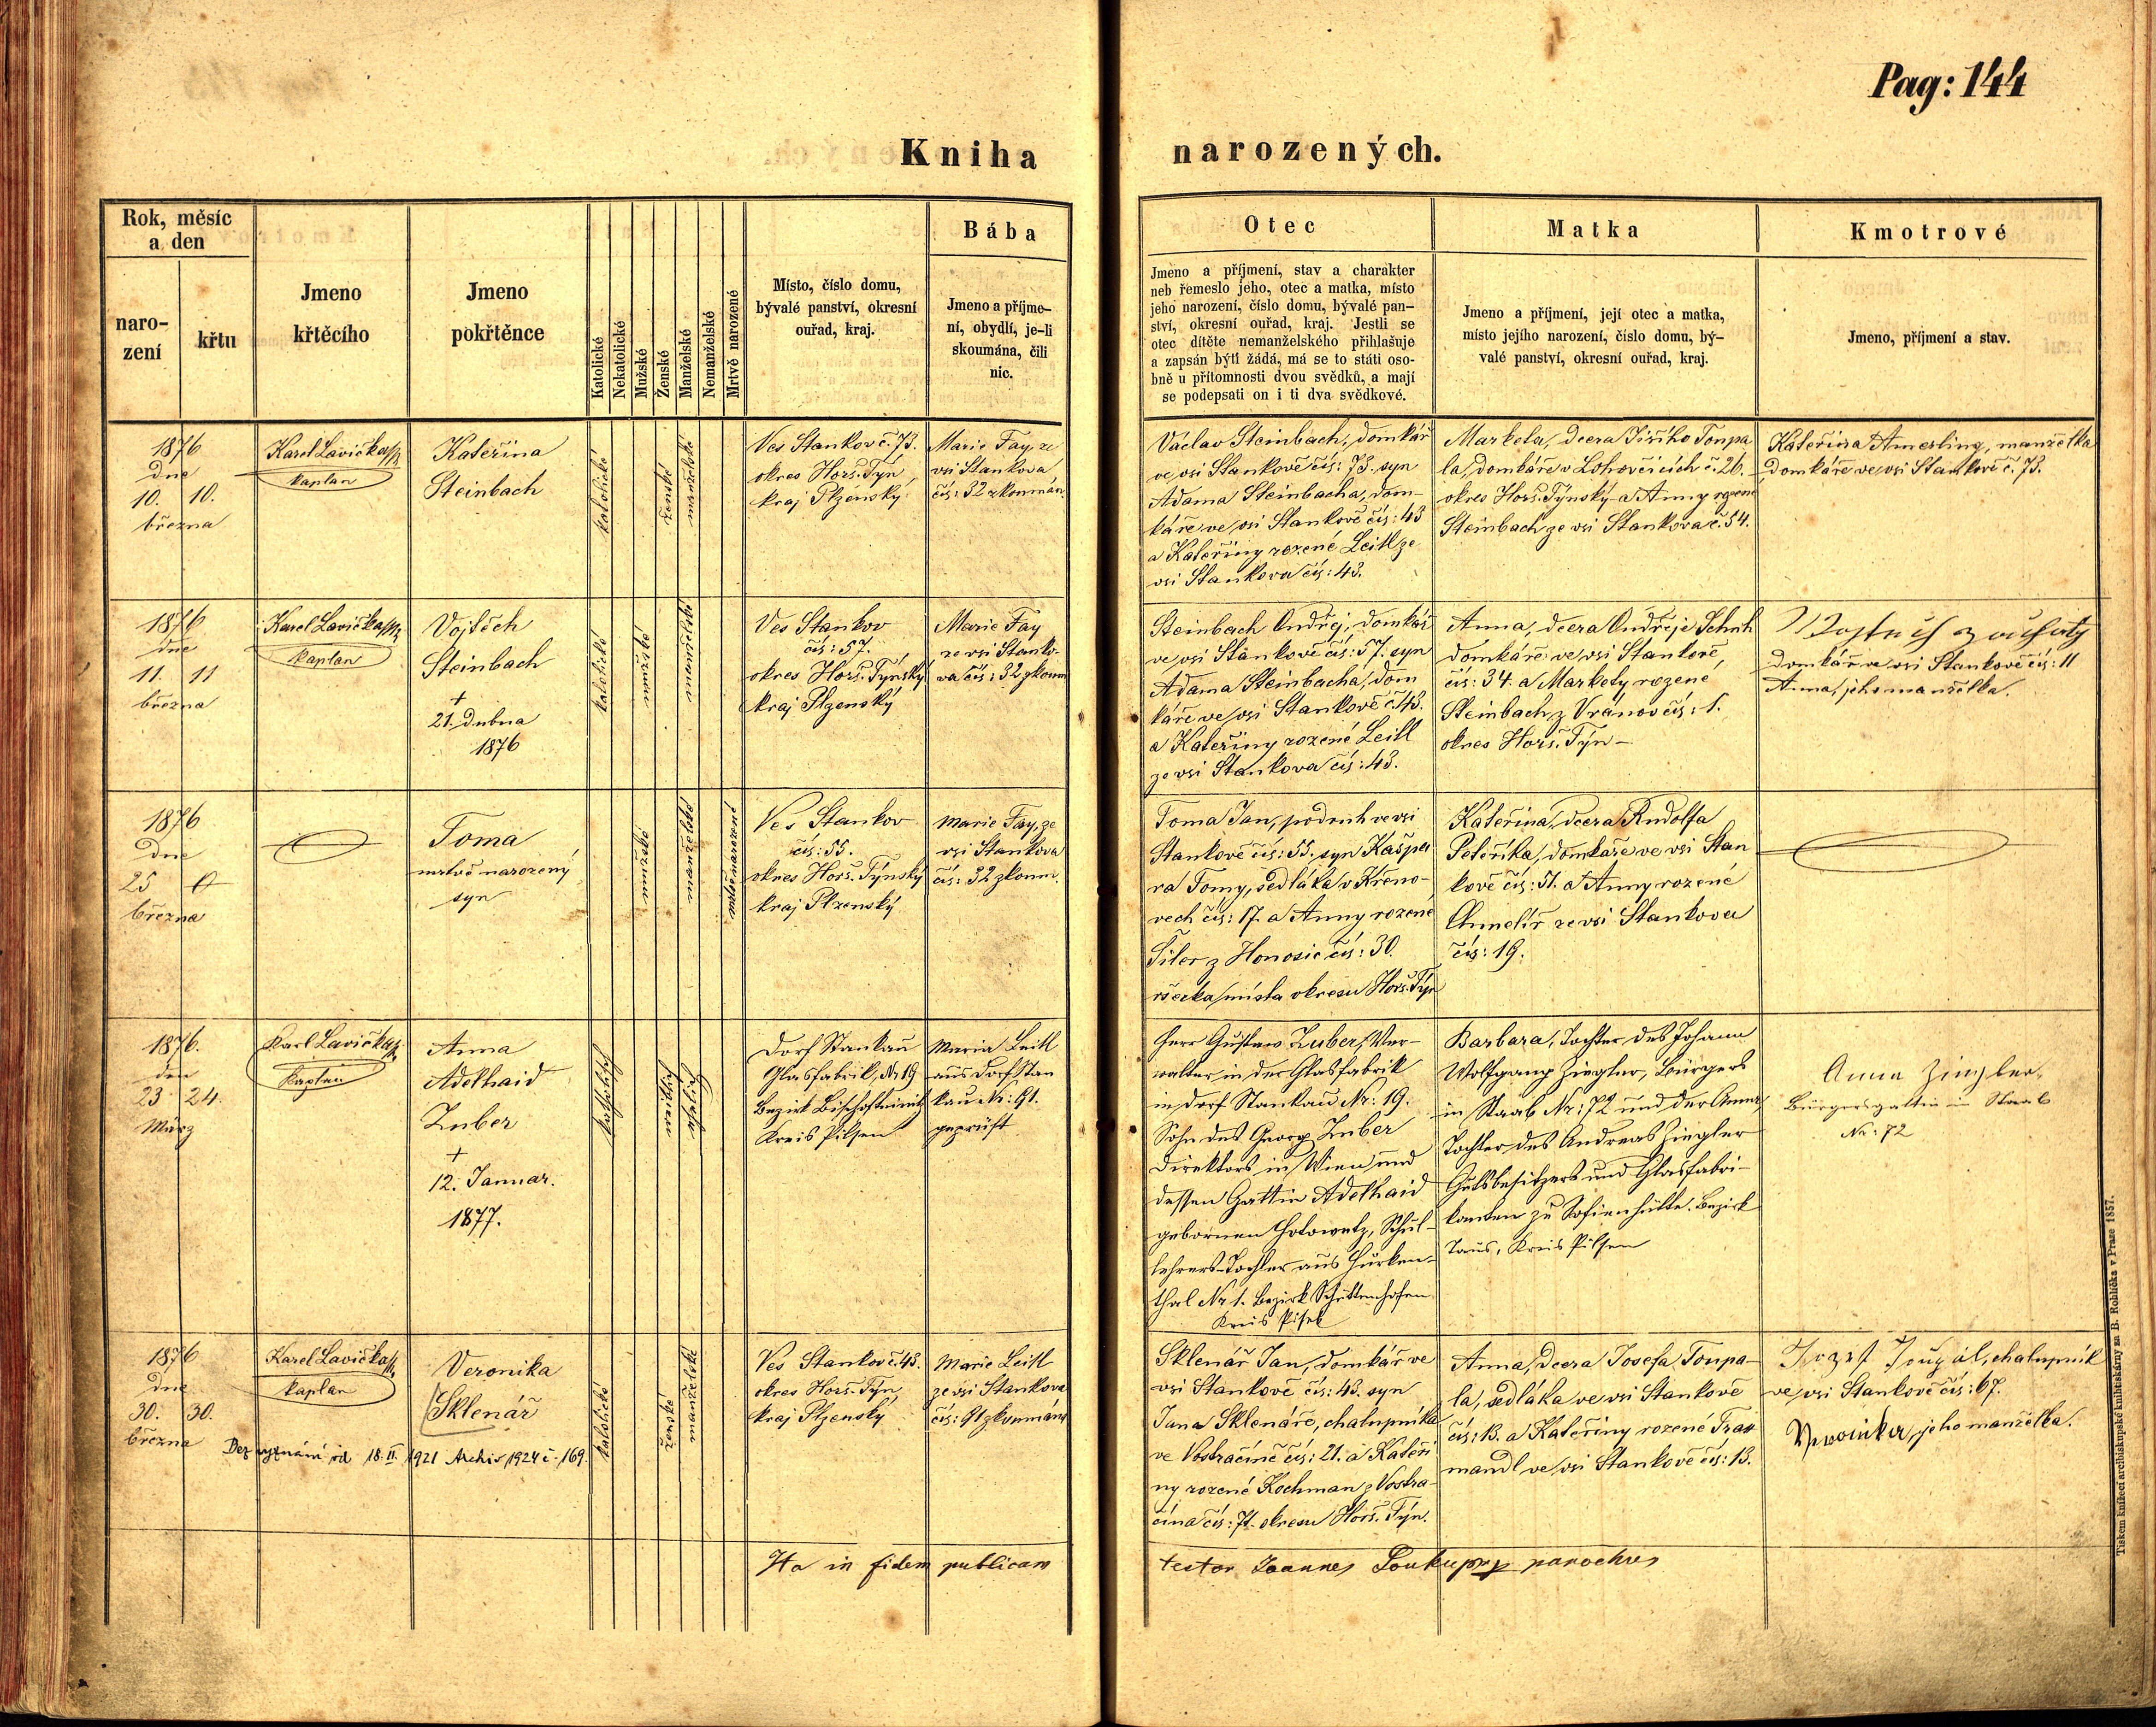 Pag: 144
Kniha narozených.
Rok, měsíc
a den
naro-
zení
křtu
Jmeno
křtěcího
Jmeno
pokřtěnce
Katolické
Nekatolické
Mužské
Ženské
Manželské
Nemanželské
Mrtvě narozené
Místo, číslo domu,
bývalé panství, okresní
ouřad, kraj.
Bába
Jmeno a příjme-
ní, obydlí, je-li
skoumána, čili
nic.
Otec
Jmeno a příjmení, stav a charakter
neb řemeslo jeho, otec a matka, místo
jeho narození, číslo domu, bývalé pan-
ství, okresní ouřad, kraj. Jestli se
otec dítěte nemanželského přihlašuje
a zapsán býti žádá, má se to státi oso-
bně u přítomnosti dvou svědků, a mají
se podepsati on i ti dva svědkové.
Matka
Jmeno a příjmení, její otec a matka,
místo jejího narození, číslo domu, bý-
valé panství, okresní ouřad, kraj.
Kmotrové
Jmeno, příjmení a stav.
1876
dne
10. 10.
března
Karel Lavička
kaplan
Kateřina
Steinbach
katolické
ženské
manželské
Ves Stankov č. 73.
okres Horš. Týn,
kraj Plzenský
Marie Fay, ze
vsi Stankova
čís: 32 zkoumán.
Václav Steinbach, domkář
ve vsi Stankově čís: 73, syn
Adama Steinbacha, dom-
káře ve vsi Stankově čís: 43
a Kateřiny rozené Leitl ze
vsi Stankova čís: 43.
Marketa, dcera Jiřího Toupa
la, domkáře v Lohovčicích č. 26.
okres Horš. Týnský a Anny rozené
Steinbach ze vsi Stankova č. 54.
Kateřina Amerling, manželka
domkáře ve vsi Stankově č. 73.
1876
dne
11. 11
března
Karel Lavička
kaplan
Vojtěch
Steinbach
+
21. Dubna
1876
katolické
mužské
manželské
Ves Stankov
čís: 57.
okres Horš. Týnský
kraj Plzenský
Marie Fay
ze vsi Stanko-
va čís: 32 zkoum
Steinbach Ondřej, domkář
ve vsi Stankově čís: 57. syn
Adama Steinbacha, dom
káře ve vsi Stankově č. 43.
a Kateřiny rozené Leitl
ze vsi Stankova čís: 43.
Anna, dcera Ondřeje Schuh
domkáře ve vsi Stankově,
čís: 34. a Markety rozené
Steinbach z Vránov čís: 1.
okres Horš. Týn –
domkář ve vsi Stankově čís: 11
Anna, jeho manželka.
1876
dne
25
března
Toma
mrtvě narozený
syn
mužské
manželské
mrtvě narozené
Ves Stankov
čís: 55.
okres Horš. Týnský
kraj Plzenský
Marie Fay, ze
vsi Stankova
čís: 32 zkoum.
Toma Jan, podruh ve vsi
Stankově čís: 55. syn Kašpa
ra Tomy, sedláka v Křeno-
vech čís: 17. a Anny rozené
Šiler z Honosic čís: 30.
všecka místa okresu Horš. Týn
Kateřina, dcera Rudolfa
Peteříka, domkáře ve vsi Stan
kově čís: 51. a Anny rozené
Chmelíř ze vsi Stankova
čís: 19.
1876.
den
23. 24.
März
Karl Lavička
Kaplan
Anna
Adelhaid
Zuber
+
12. Januar.
1877.
katholisch
weiblich
ehelich
Dorf Stankau
Glasfabrik, Nr 19
Bezirk Bischofteinitz
Kreis Pilsen
Maria Leitl
aus Dorf Stan
kau Nr: 91.
geprüft
Herr Gustav Zuber, Ver-
walter in der Glasfabrik
in Dorf Stankau Nr: 19.
Sohn des Georg Zuber
Direktors in Wien und
dessen Gattin Adelhaid
gebornen Hotowetz, Schul-
lehrers-Tochter aus Hurken-
thal Nr 1. Bezirk Schüttenhofen
Kreis Pisek
Barbara, Tochter des Johann
Wolfgang Ziegler, Bürgers
in Staab Nr: 72 und der Anna,
Tochter des Andreas Ziegler
Gutsbesitzers und Glasfabri-
kanten zu Sofienhütte. Bezirk
Taus, Kreis Pilsen
Anna Ziegler,
Bürgersgattin in Staab
Nr: 72
1876
dne
30. 30.
března
Karel Lavička
kaplan
Veronika
Sklenář
Bez vyznání od 18. II. 1921 Archiv 1924 č. 169.
katolické
ženské
manželské
Ves Stankov č. 43.
okres Horš. Týn,
kraj Plzenský
Marie Leitl
ze vsi Stankova
čís: 91 zkoumána
Sklenář Jan, domkář ve
vsi Stankově čís: 43. syn
Jana Sklenáře, chalupníka
ve Vostračíně čís: 21. a Kateři
ny rozené Kochman z Vostra-
čína čís: 71. okresu Horš. Týn.
Anna, dcera Josefa Toupa-
la, sedláka ve vsi Stankově
čís: 13. a Kateřiny rozené Trau
mandl ve vsi Stankově čís: 13.
Jozef Toupal, chalupník
ve vsi Stankově čís: 67.
Veronika, jeho manželka.
Ita in fidem publicam testor Joannes Soukup parochus
Tiskem knížecí arcibiskupské knihtiskárny za B. Rohlíčka v Praze 1857.